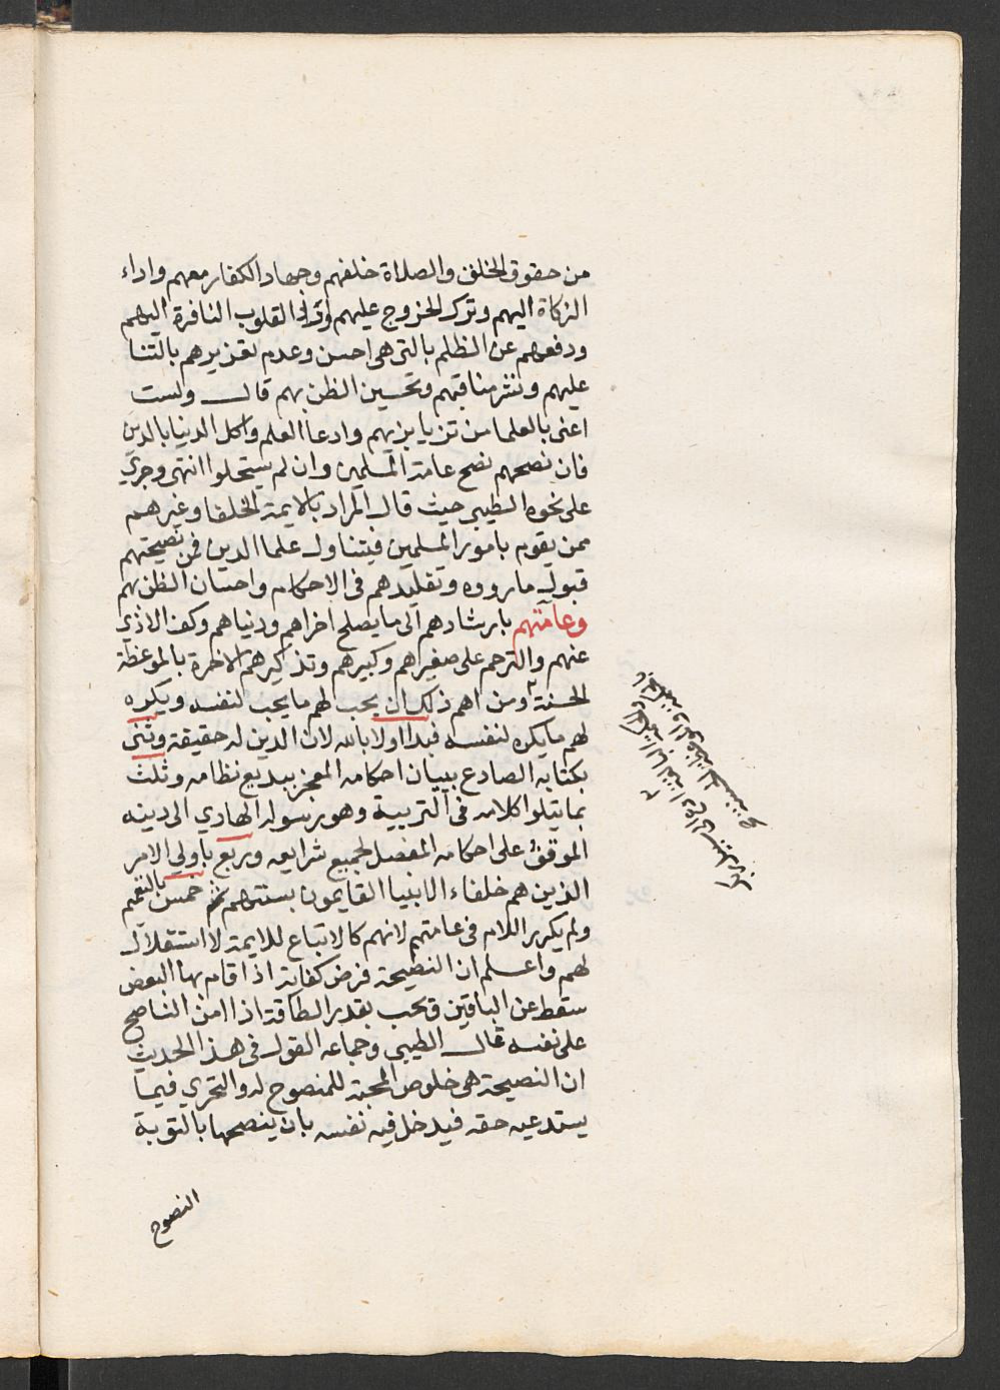 من حقوق الخلق والصلاة خلفهم وجهاد الكفار معهم واداء
الزكاة اليهم وترك الخروج عليهم القلوب النافرة اليهم
ودفعهم عن الظلم بالتي هي احسن وعدم تعزيرهم بالثنا
عليهم ونشر مناقبهم وتحسين الظن بهم قال ولست
اعنى بالعلما من تزيا بزيهم وادعا العلم واكل الدنيا بالدين
فان نصحهم نصح عامة المسلمين وان لم يستحلوا انتهى وجري
على نحوه الطيبي حيث قال المراد بالايمة الخلفا وغيرهم
ممن يقوم بامور المسلمين فيتناول علما الدين فمن نصيحتهم
قبول ما رووه وتقليدهم في الاحكام واحسان الظن بهم
وعامتهم بارشادهم الى ما يصلح اخراهم ودنياهم وكف الاذي
عنهم والترحم على صغيرهم وكبيرهم وتذكيرهم الاخرة بالموعظة
الحسنة ومن اهم ذلك ان يحب لهم ما يحب لنفسه ويكره
لهم ما يكره لنفسه فبدا اولا بالله لان الدين له حقيقة وثنى
بكتابه الصادع ببيان احكامه المعجز ببديع نظامه وثلث
بما يتلوا كلامه في التربية وهو رسوله الهادي الى دينه
الموقف على احكامه المفصل لجميع شرايعه وربع باولي الامر
الذين هم خلفاء الانبيا القايمون بسنتهم خمس بالتعميم
ولم يكرر اللام في عامتهم لانهم كالاتباع للايمة لا استقلال
لهم واعلم ان النصيحة فرض كفاية اذا قام بها البعض
سقط عن الباقين وتجب بقدر الطاقة اذا امن الناصح
على نفسه قال الطيبي وجماعه القول في هذا الحديث
ان النصيحة هي خلوص المحبة للمنصوح له والتحري فيما
يستدعيه حقه فيدخل فيه نفسه بان ينصحها بالتوبة
النصوح